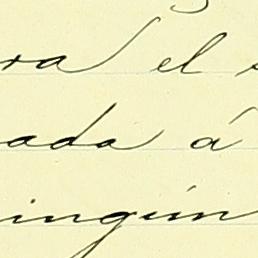 ra el
ada á
ingún